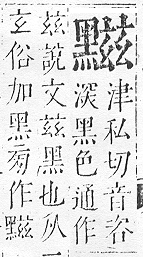 津私切音咨
深黑色通作
兹說文兹黑也从
玄俗加黑㫄作